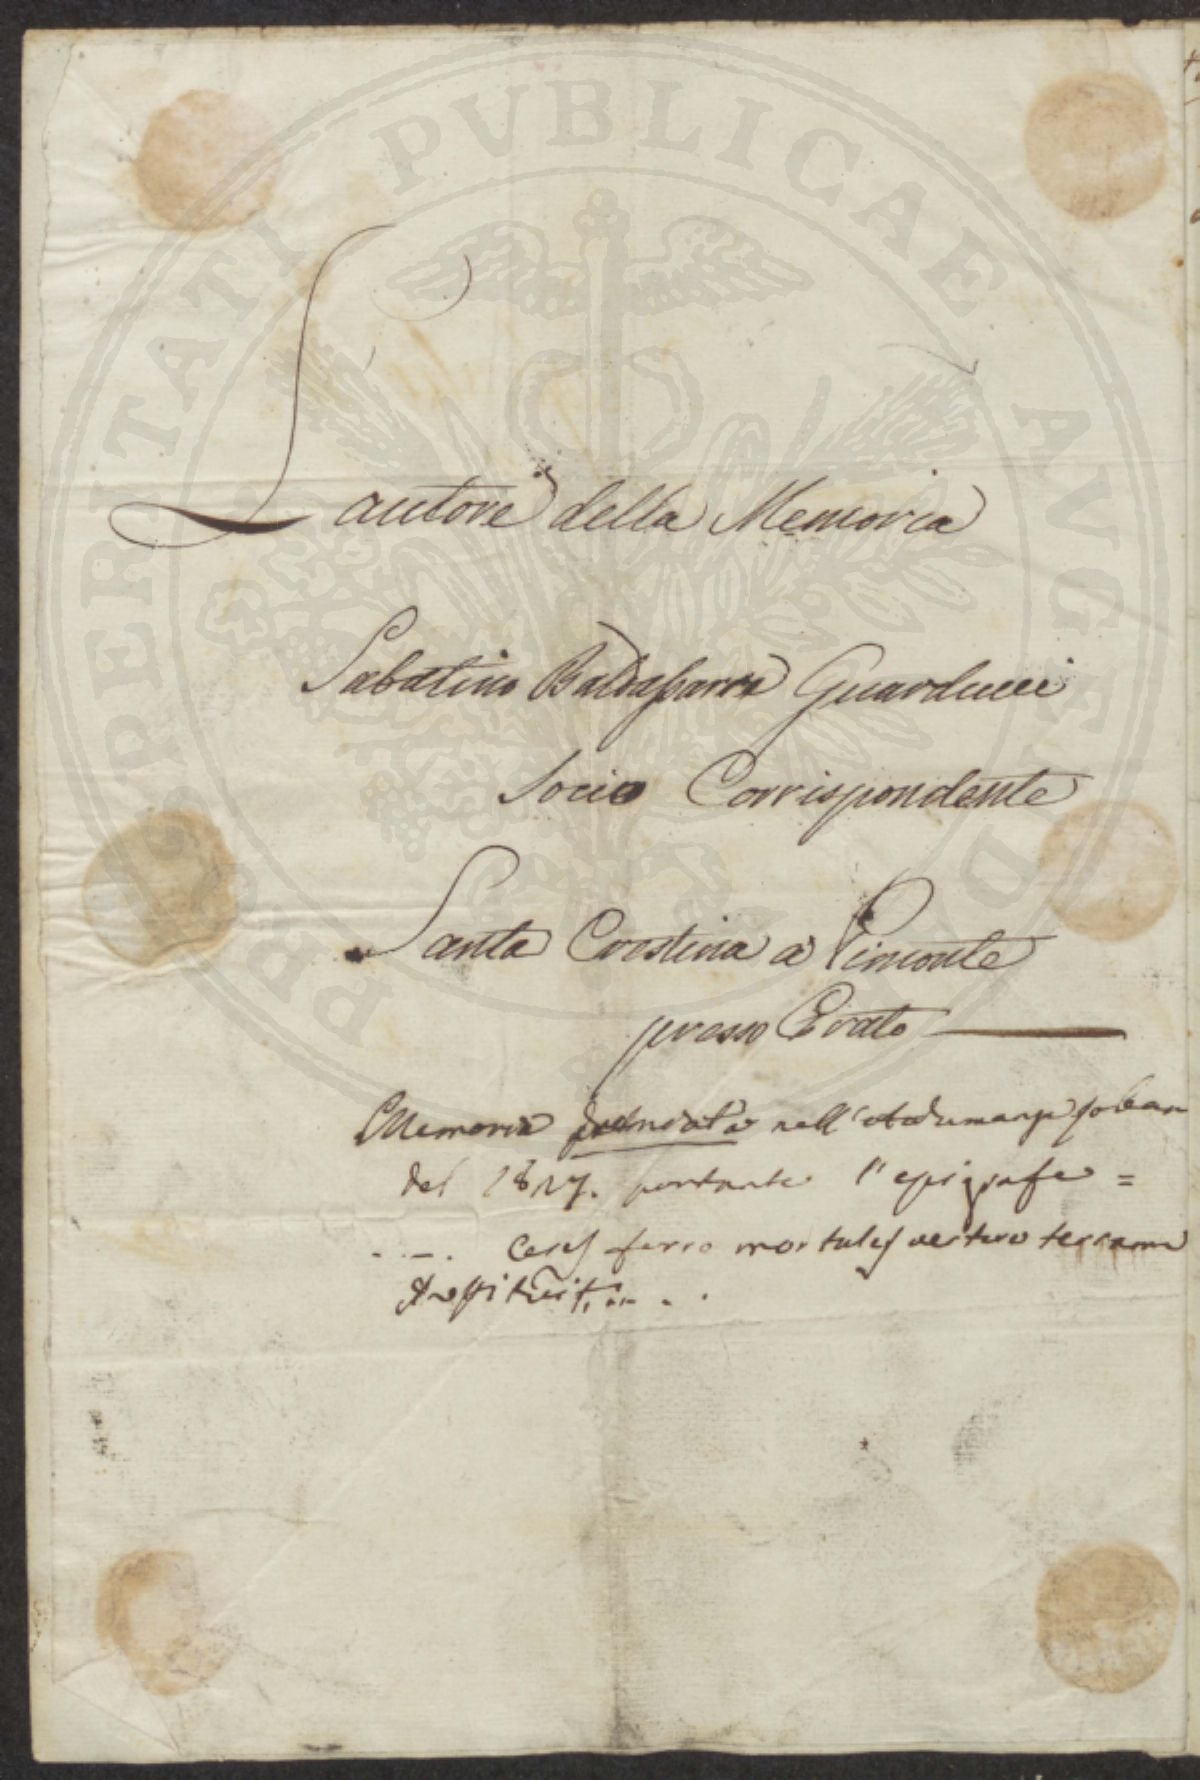 PROSPERITATI PVBLICAE AVGENDAE
L'autore della Memoria
Sabatino Baldassarre Guarducci
Socio Corrispondente
Santa Crestina a Pimonte
presso Prato
Memoria premiata nell'Adunanza solenn
del 1817. portante l'epigrafe =
.... Ceres ferro mortales vertere terram
Instituit....